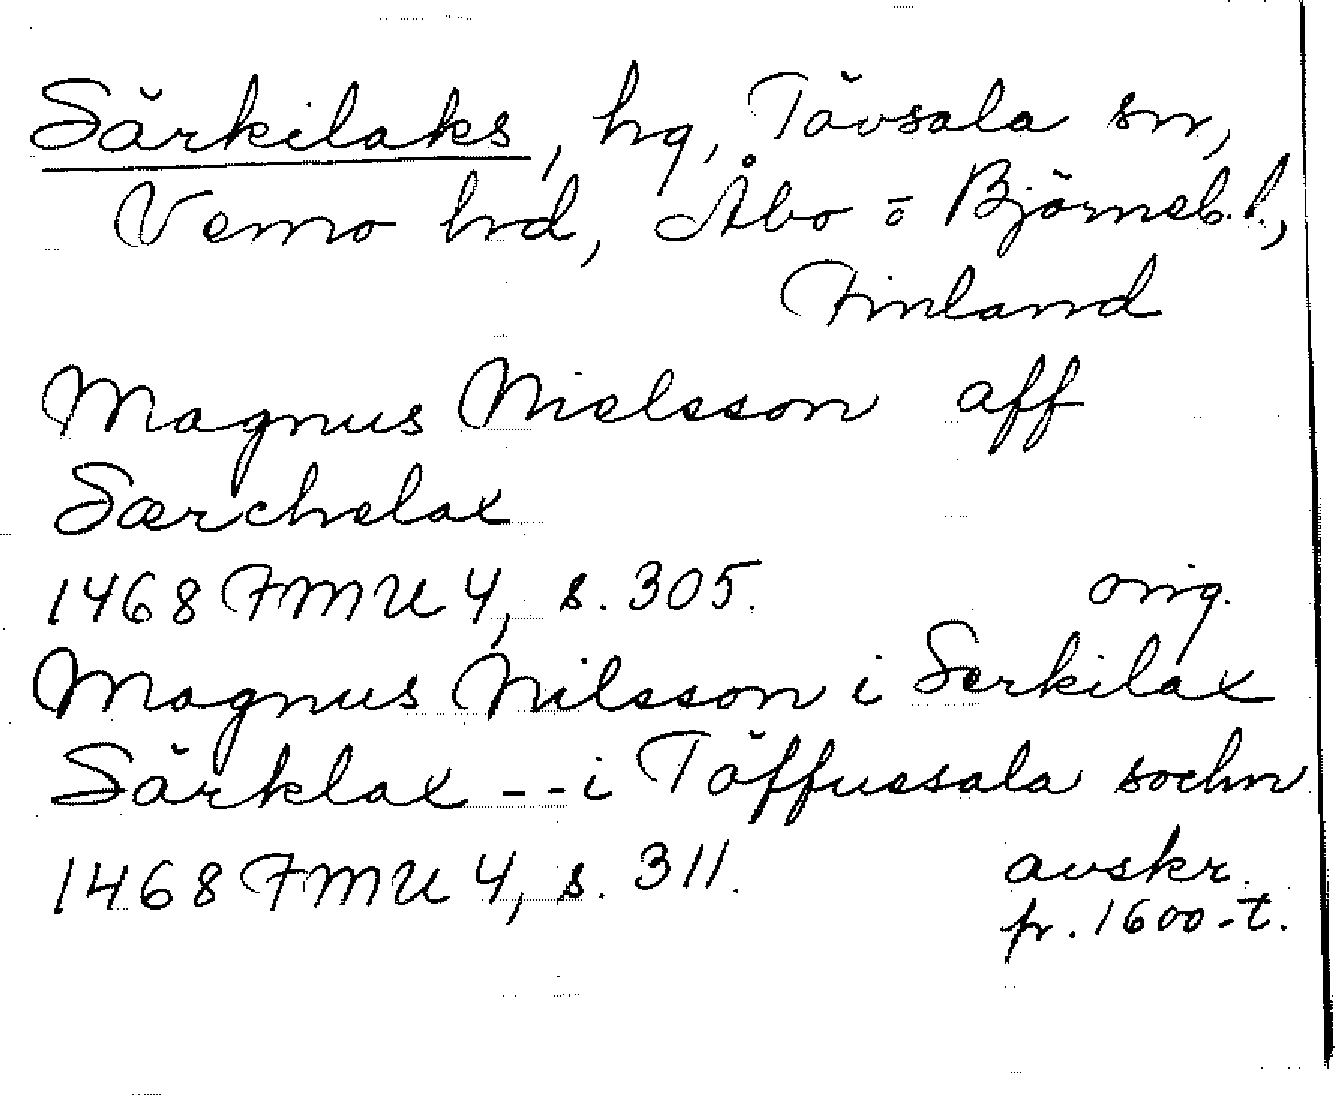 Särkilaks, hg, Tövsala sn,
Vemo hd, Åbo o Björneb. l.,
Finland
Magnus Nielsson aff
Særchelax
1468 FMU 4, s. 305. orig.
Magnus Nilsson i Serkilax
Särklax -- i Töffuesala sochn
1468 FMU 4, s. 311. avskr.
fr. 1600-t.